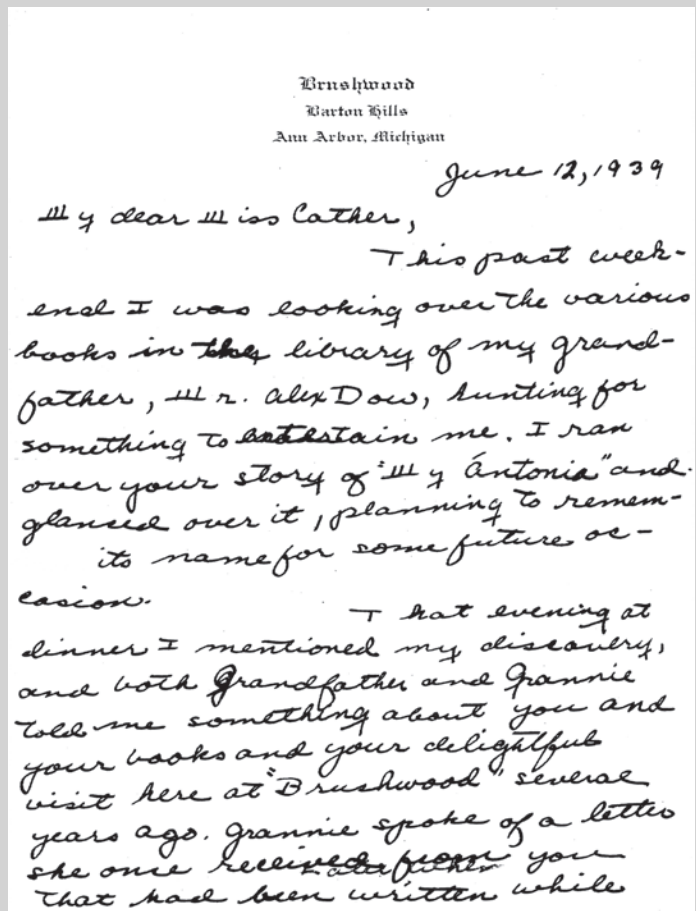 Brushwood
Barton Hills
Ann Arbor, Michigan
June 12, 1939
My dear Miss Cather,
This past week-
end I was looking over the various
books in the library of my grand-
father, Mr. Alex Dow, hunting for
something to entertain me. I ran
over your story of "My Ántonia" and
glanced over it, planning to remem-
its name for some future oc-
casion.
That evening at
dinner I mentioned my discovery,
and both Grandfather and Grannie
told me something about you and
your books and your delightful
visit here at "Brushwood" several
years ago. Grannie spoke of a letter
she once received from you
that had been written while